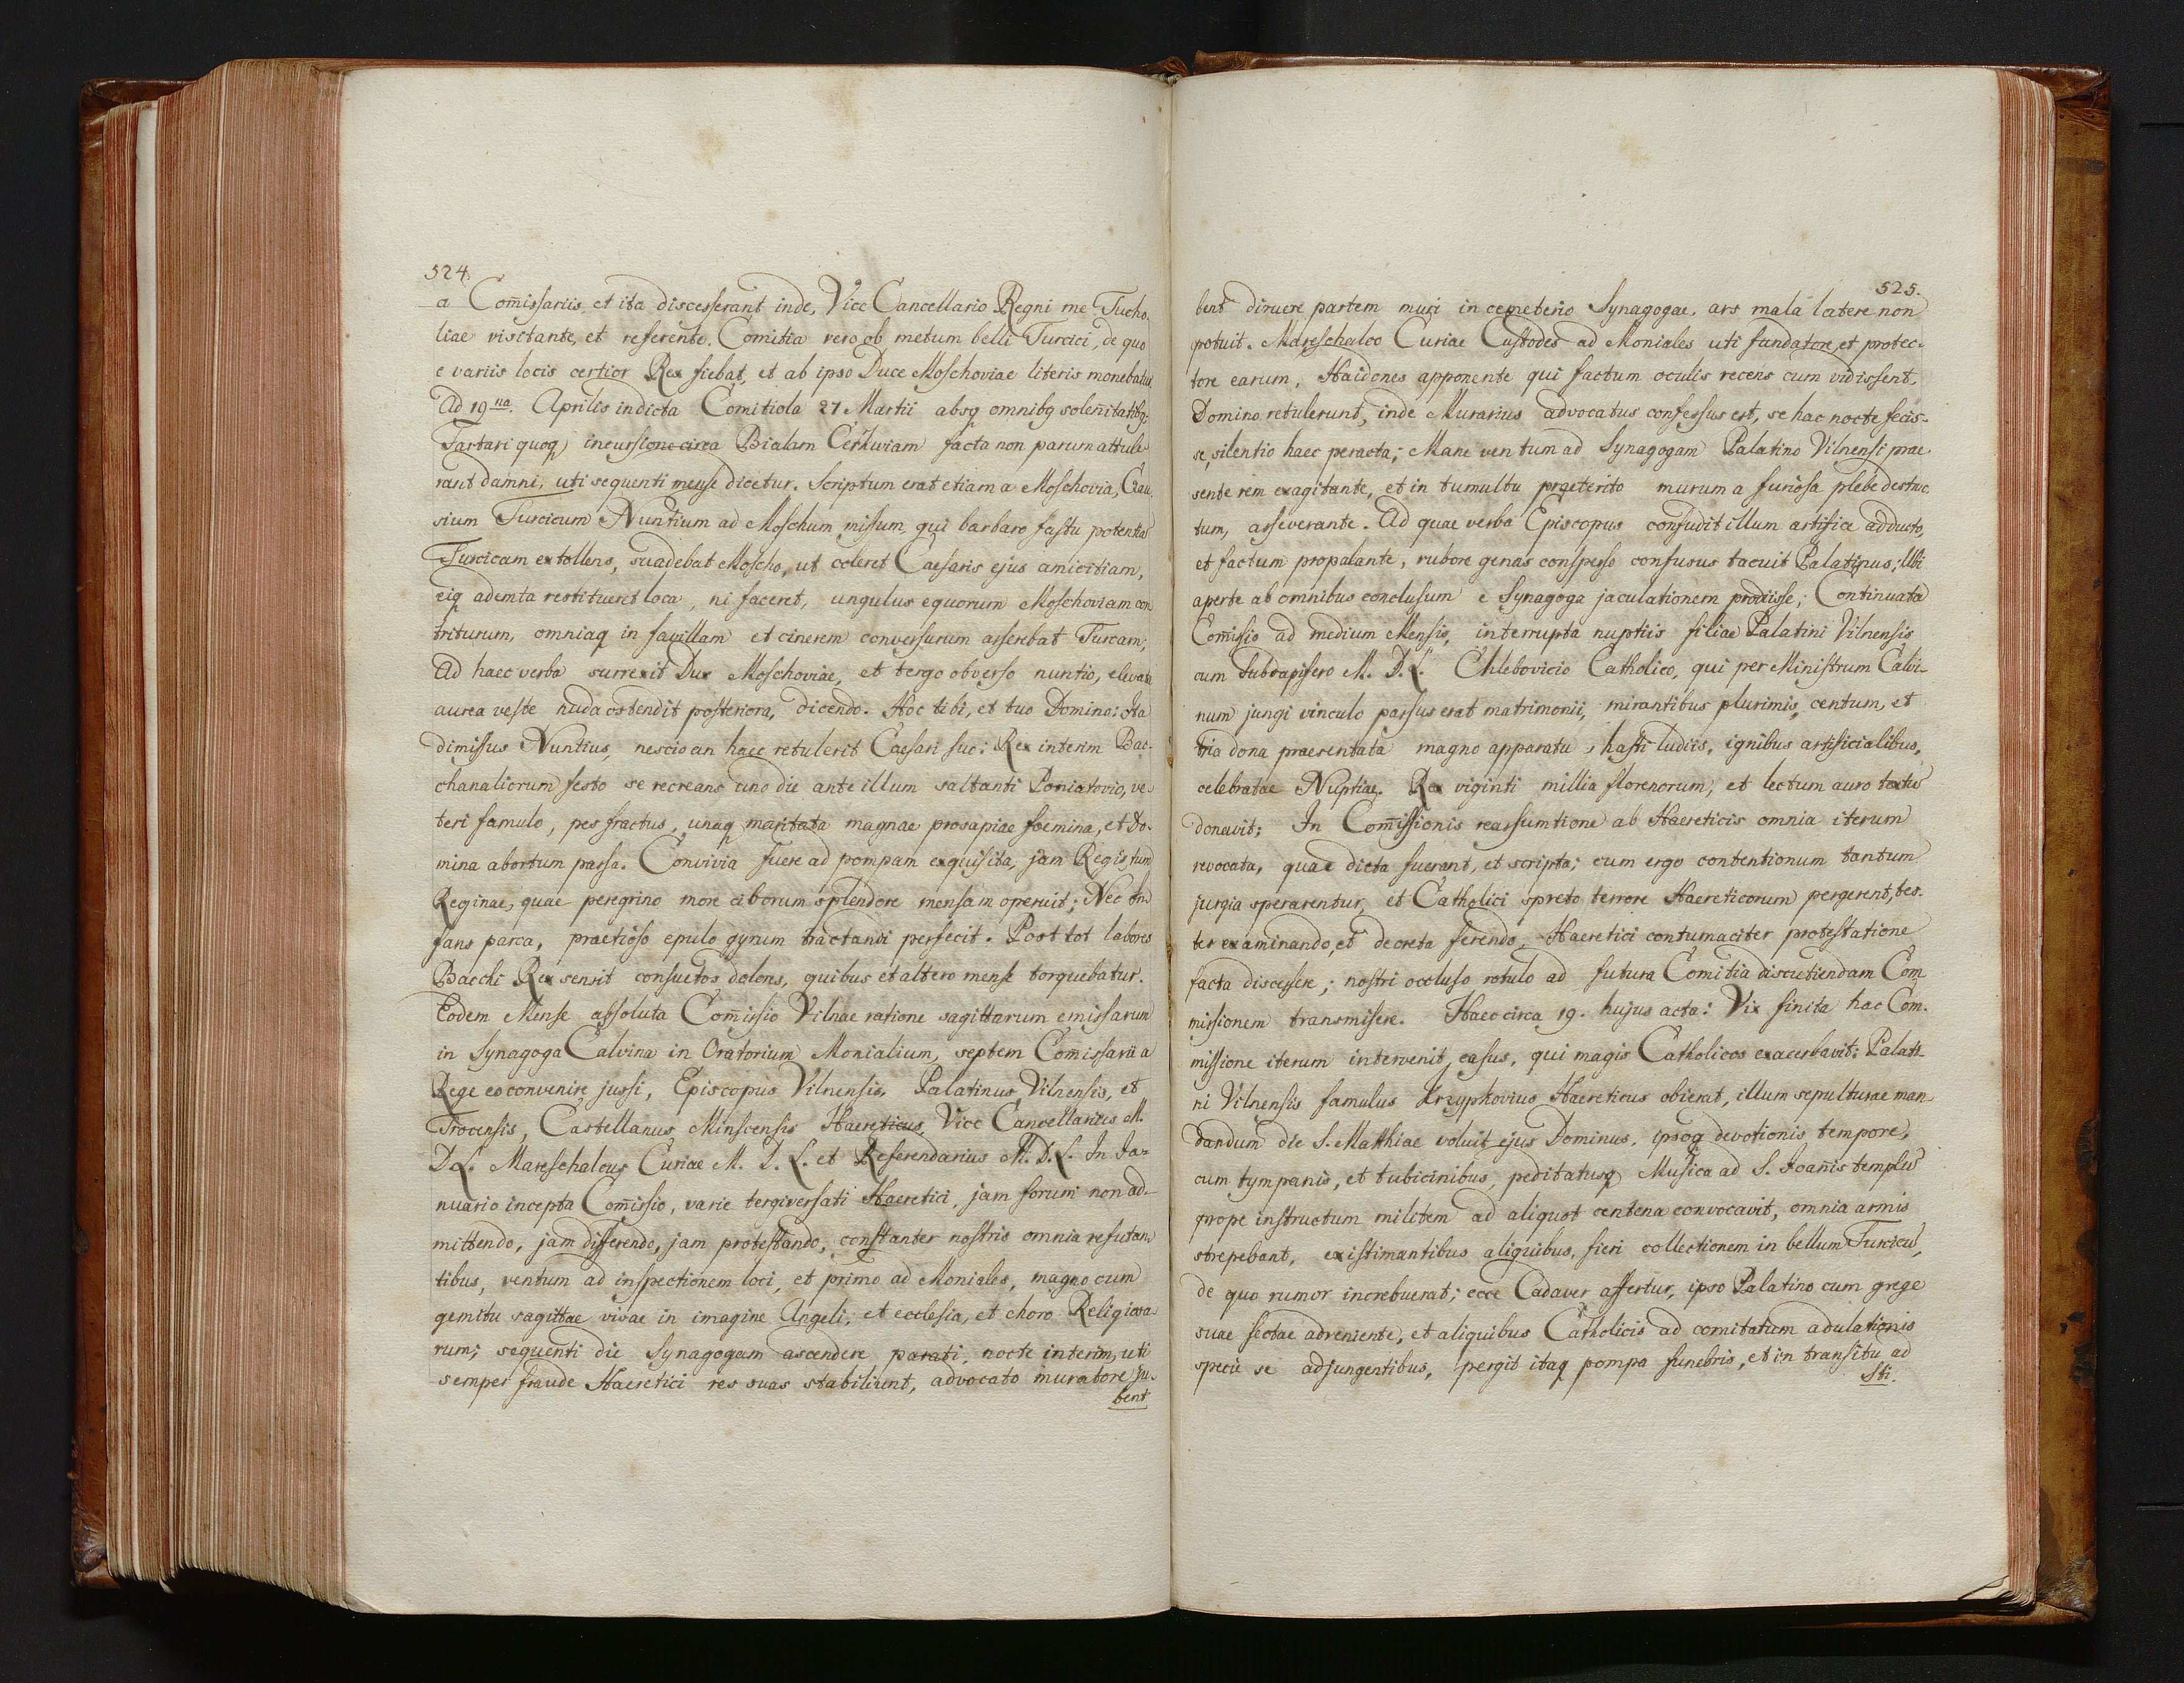 524.
a Com̄issariis, et ita discesserant inde, Vice Cancellario Regni me Tucho-
liae visitante, et referente. Comitia vero ob metum belli Turcici, de quo
e variis locis certior Rex fiebat, et ab ipso Duce Moschoviae literis monebatur
Ad 19na. Aprilis indicta Comitiola 27 Martii absq omnibq solen̄itatibq.
Tartari quoq incursione circa Bialam Cerkwiam facta non parum attule
rant damni, uti sequenti mense dicetur. Scriptum erat etiam a Moschovia,
sium Turcicum Nuntium ad Moschum missum, qui barbaro fastu potentiā
Turcicam extollens, suadebat Moscho, ut coleret Caesaris ejus amicitiam,
eiq ademta restitueret loca, ni faceret, ungulus equorum Moschoviam con
triturum, omniaq in favillam et cinerem conversurum asserebat Turcam;
Ad haec verba surrexit Dux Moschoviae, et tergo obverso nuntio, elevata
aurea veste nuda ostendit posteriora, dicendo. Hoc tibi, et tuo Domino: Ita
dimissus Nuntius, nescio an haec retulerit Caesari suo: Rex interim Bac-
chanaliorum festo se recreans uno die ante illum saltanti Poniatovio, ve-
teri famulo, pes fractus, unaq maritata magnae prosapiae foemina, et Do-
mina abortum passa. Convivia fuere ad pompam exquisita, jam Regis tum
Reginae, quae peregrino more ciborum splendore mensam operuit; Nec In-
fans parca, praetioso epulo gyrum tractandi perfecit. Post tot labores
Bacchi Rex sensit consuetos dolores, quibus et altero mense torquebatur.
Eodem Mense absoluta Com̄issio Vilnae ratione sagittarum emissarum
in Synagoga Calvina in Oratorium Monialium, septem Comissarii a
Rege eo convenire jussi, Episcopus Vilnensis, Palatinus Vilnensis, et
Trocensis, Castellanus Minscensis Haereticus, Vice Cancellarius M.
D. L. Mareschalcus Curiae M. D. L. et Referendarius M. D. L. In Ja-
nuario incepta Com̄issio, varie tergiversati Haeretici, jam forum non ad-
mittendo, jam differendo, jam protestando, constanter nostris omnia refutan-
tibus, ventum ad inspectionem loci, et primo ad Moniales, magno cum
gemitu sagittae visae in imagine Angeli, et ecclesia, et choro Religiosa-
rum; sequenti die Synagogam ascendere parati, nocte interim, uti
semper fraude Haeretici res suas stabiliunt, advocato muratore ju-
bent
525.
bent diruere partem muri in cemeterio Synagogae, ars mala latere non
potuit. Mareschalco Curiae Custodes ad Moniales uti fundatore, et protec-
tore earum, Haidones apponente qui factum oculis recens cum vidissent,
Domino retulerunt, inde Murarius advocatus confessus est, se hac nocte fecis-
se, silentio haec peracta; Mane ventum ad Synagogam Palatino Vilnensi prae
sente rem exagitante, et in tumultu praeterito murum a furiosa plebe destruc
tum, asseverante. Ad quae verba Episcopus confudit illum artifice adducto,
et factum propalante, rubore genas consperso confusus tacuit Palatinus; Ubi
aperte ab omnibus conclusum e Synagoga jaculationem prodiisse; Continuata
Com̄issio ad medium Mensis, interrupta nuptiis filiae Palatini Vilnensis
cum Subdapifero M. D. L. Chlebovicio Catholico, qui per Ministrum Calvi-
num jungi vinculo passus erat matrimonii, mirantibus plurimis, centum, et
tria dona praesentata magno apparatu, hastiludiis, ignibus artificialibus,
celebratae Nuptiae. Rex viginti millia florenorum, et lectum auro textū
donavit; In Com̄issionis reassumtione ab Haereticis omnia iterum
revocata, quae dicta fuerant, et scripta; cum ergo contentionum tantum
jurgia sperarentur, et Catholici spreto terrore Haereticorum pergerent, tes-
tes examinando, et decreta ferendo, Haeretici contumaciter protestatione
facta discessere; nostri occluso rotulo ad futura Comitia discutiendam Com
missionem transmisere. Haec circa 19. hujus acta: Vix finita hac Com-
missione iterum intervenit casus, qui magis Catholicos exacerbavit: Palati-
ni Vilnensis famulus Krzyphovius Haereticus obierat, illum sepulturae man-
dandum die S. Matthiae voluit ejus Dominus, ipsoq devotionis tempore,
cum tympanis, et tubicinibus, peditatusq Musica ad S. Joan̄is templū
prope instructum militem ad aliquot centena convocavit, omnia armis
strepebant, existimantibus aliquibus, fieri collectionem in bellum Turcicū,
de quo rumor increbuerat; ecce Cadaver affertur, ipso Palatino cum grege
suae sectae adveniente, et aliquibus Catholicis ad comitatum adulationis
specie se adjungentibus, pergit itaq pompa funebris, et in transitu ad
Sti.